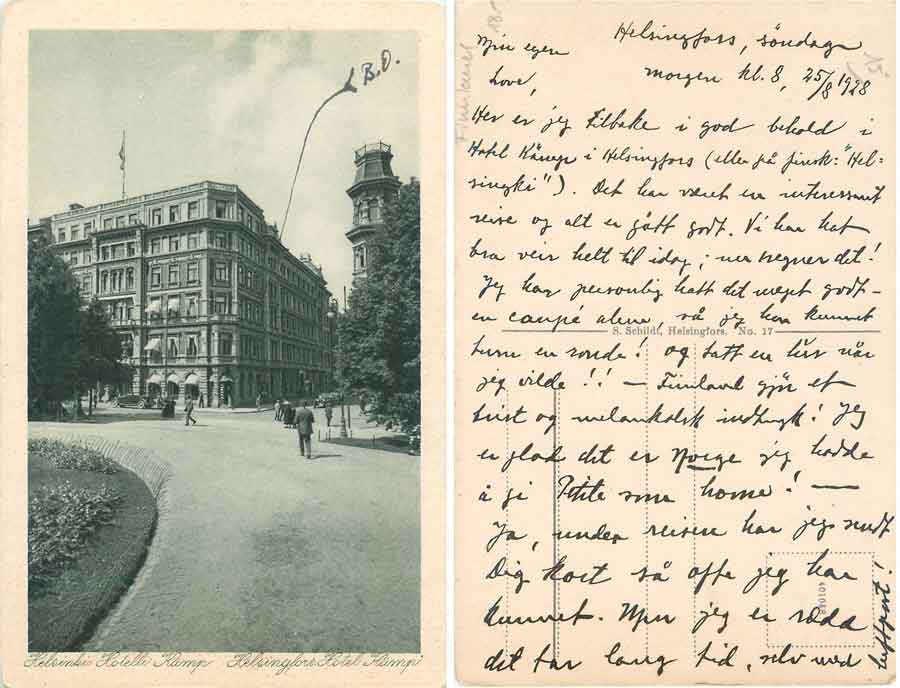 B.O.
Helsinki Hotelli Kämp Helsingfors Hotel Kämp
Finnland
18.-
Helsingfors, söndag
morgen kl. 8, 25/8 1928
Min egen
Love,
Her er jeg tilbake i god behold i
Hotel Kämp i Helsingfors (eller på finsk: "Hel=
singki"). Det har været en interessant
reise og alt er gått godt. Vi har hat
bra veir helt til idag; nu regner det!
Jeg har personlig hatt det meget godt -
en coupé alene, så jeg har kunnet
S. Schildt, Helsingfors. No. 17
turn en runde! og tatt en lur når
jeg vilde!! - Finland gjør et
trist og melankolsk indtryk! Jeg
er glad det er Norge jeg hadde
å gi Petite som home! —
Ja, under reisen har jeg sendt
Dig kort så ofte jeg har
kunnet. Men jeg er rædd
det tar lang tid, selv med
luftpost!